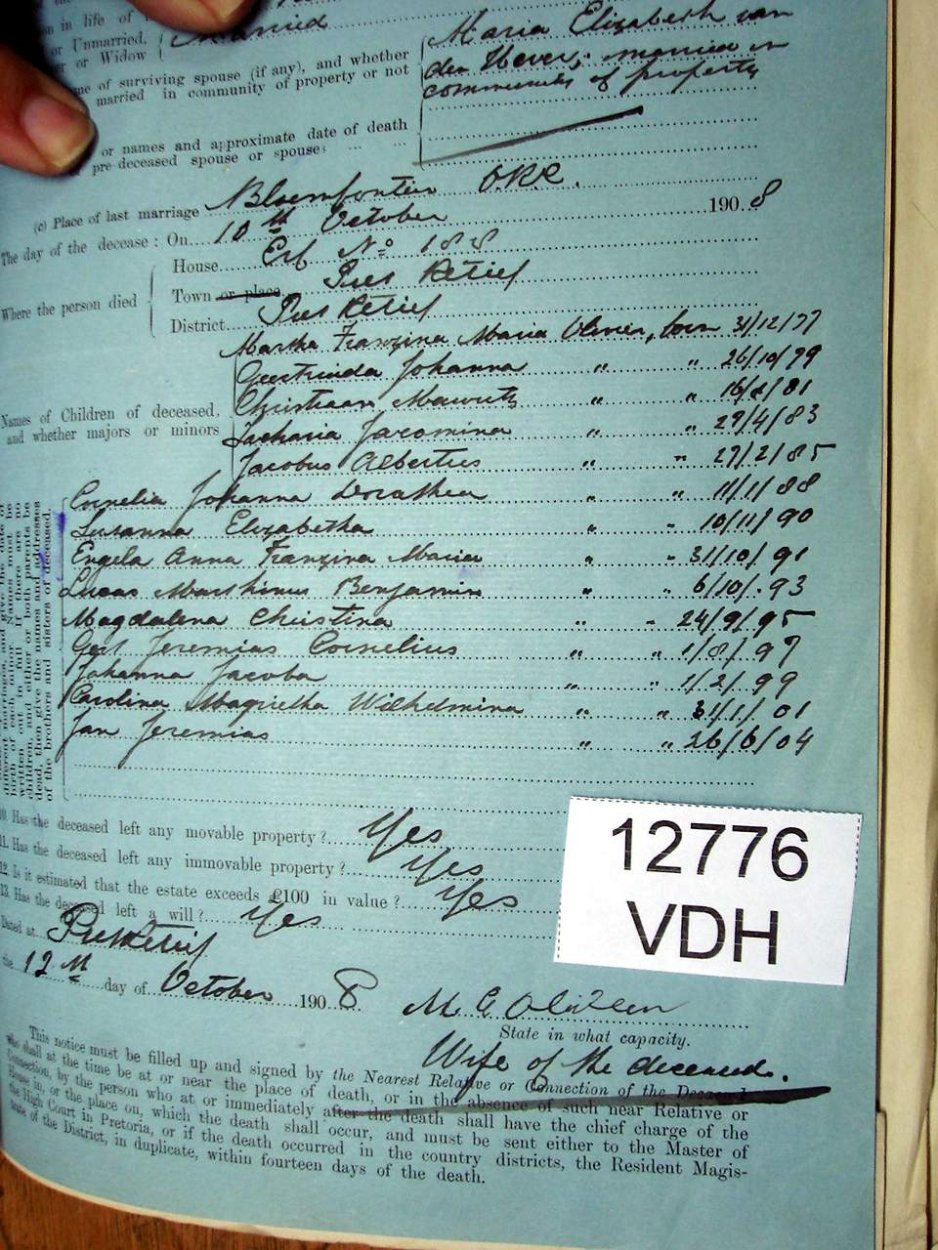 on in life of
or Unmarried, Married
or Widow
me of surviving spouse (if any), and whether Maria Elizabeth van
married in community of property or not den Hever, married in
community of property
or names and approximate date of death
pre-deceased spouse or spouses
(c) Place of last marriage Bloemfontein O.R.C.
The day of the decease: On 10th October 1908
House Erf No 188
Where the person died Town or place Piet Retief
District Piet Retief
Martha Franzina Maria Olivier, born 31/12/77
Geertruida Johanna " " 26/10/79
Christiaan Mauritz " " 16/2/81
Names of Children of deceased, Zacharia Jacomina " " 29/4/83
and whether majors or minors Jacobus Albertus " " 27/2/85
Cornelia Johanna Dorathea " " 11/11/88
Susanna Elizabetha " " 10/11/90
Engela Anna Franzina Maria " " 31/10/91
Lucas Marthinus Benjamin " " 6/10/93
Magdalena Christina " " 24/9/95
Gert Jeremias Cornelius " " 1/8/97
Johanna Jacoba " " 1/2/99
Carolina Magrietha Wilhelmina " " 31/1/01
Jan Jeremias " " 26/6/04
birth of each minor. Names must be
written out in full. If there are no
children, and either or both parents be
dead, then give the names and addresses
of the brothers and sisters of deceased.
10. Has the deceased left any movable property? Yes
11. Has the deceased left any immovable property? Yes
12. Is it estimated that the estate exceeds £100 in value? Yes
13. Has the deceased left a will? Yes
Dated at Piet Retief
the 12th day of October 1908
M E
State in what capacity.
Wife of the deceased.
This notice must be filled up and signed by the Nearest Relative or Connection of the Deceased
who shall at the time be at or near the place of death, or in the absence of such near Relative or
Connection, by the person who at or immediately after the death shall have the chief charge of the
House in, or the place on, which the death shall occur, and must be sent either to the Master of
the High Court in Pretoria, or if the death occurred in the country districts, the Resident Magis-
trate of the District, in duplicate, within fourteen days of the death.
12776
VDH